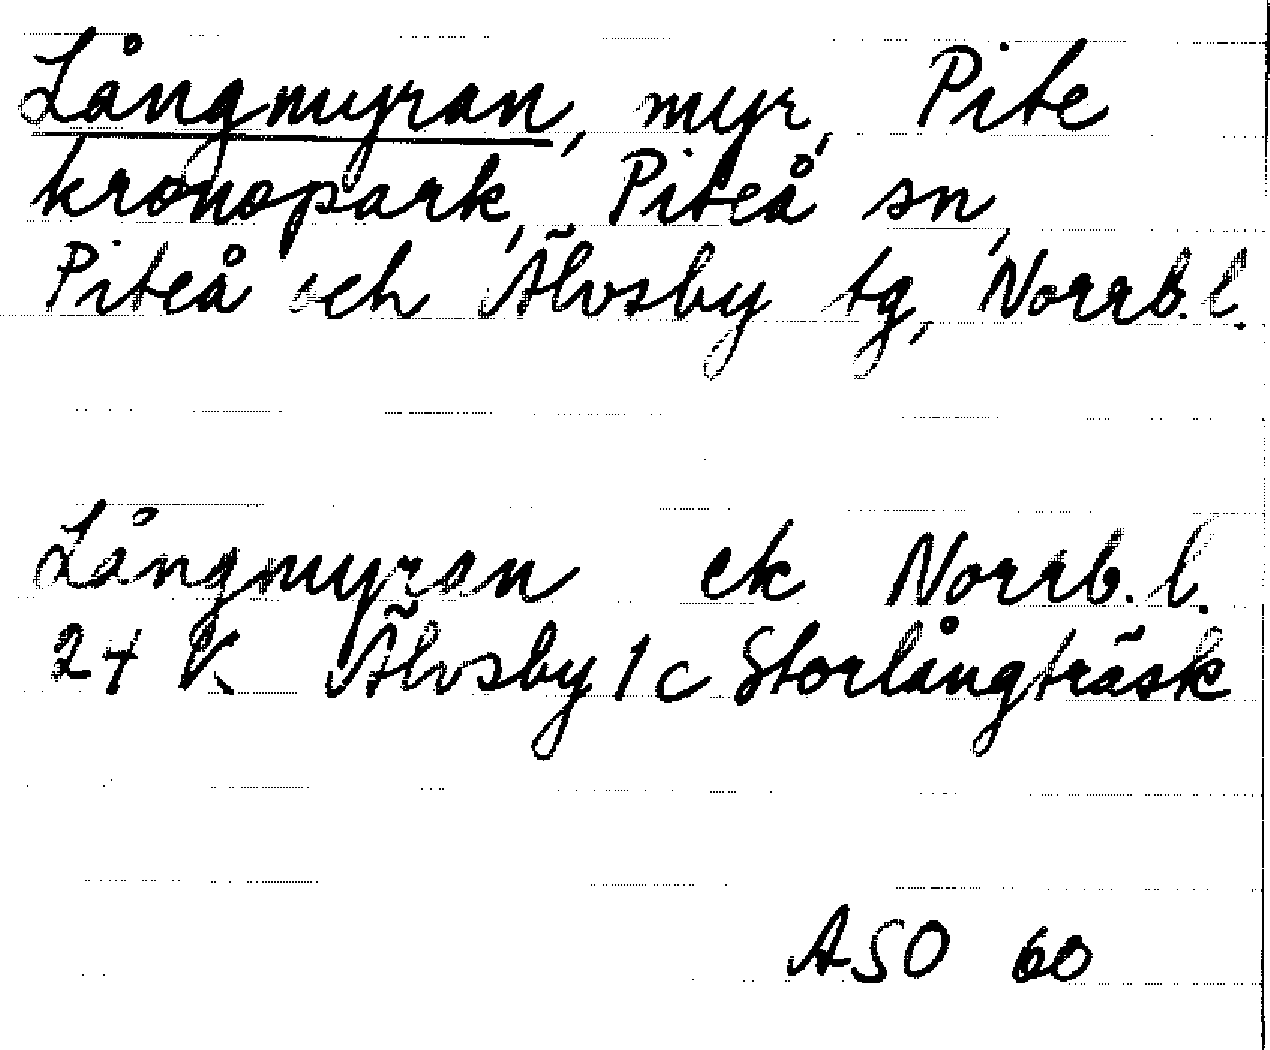 Långmyran, myr, Pite
kronopark, Piteå sn,
Piteå och Älvsby tg, Norrb. l.
Långmyran ek Norrb. l.
24 K Älvsby 1 c Storlångträsk
ASO 60